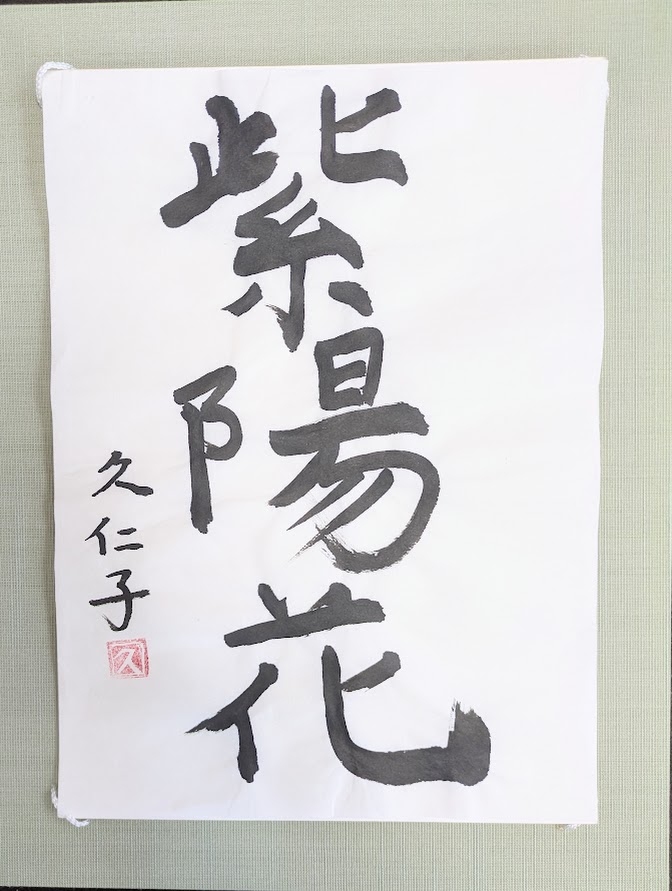 紫陽花
久仁子
久